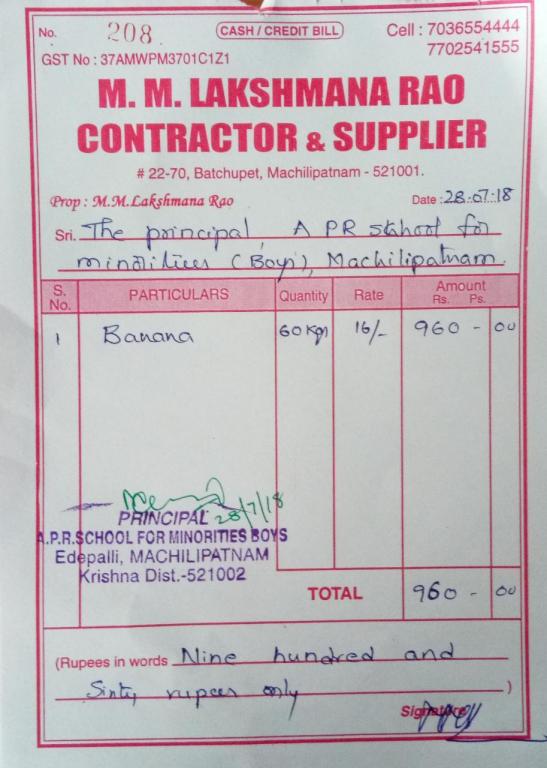 No. 208 CASH / CREDIT BILL Cell : 7036554444
7702541555
GST No : 37AMWPM3701C1Z1
M. M. LAKSHMANA RAO
CONTRACTOR & SUPPLIER
# 22-70, Batchupet, Machilipatnam - 521001.
Prop : M.M.Lakshmana Rao Date : 28-07-18
Sri. The principal, A PR skhool for
minorities (Boys), Machilipatnam
S. No. PARTICULARS Quantity Rate Amount Rs. Ps.
1 Banana 60 Kgs 16/- 960 - 00
28/7/18
PRINCIPAL
A.P.R.SCHOOL FOR MINORITIES BOYS
Edepalli, MACHILIPATNAM
Krishna Dist.-521002
TOTAL 960 - 00
(Rupees in words Nine hundred and
Sixty rupees only )
Signature